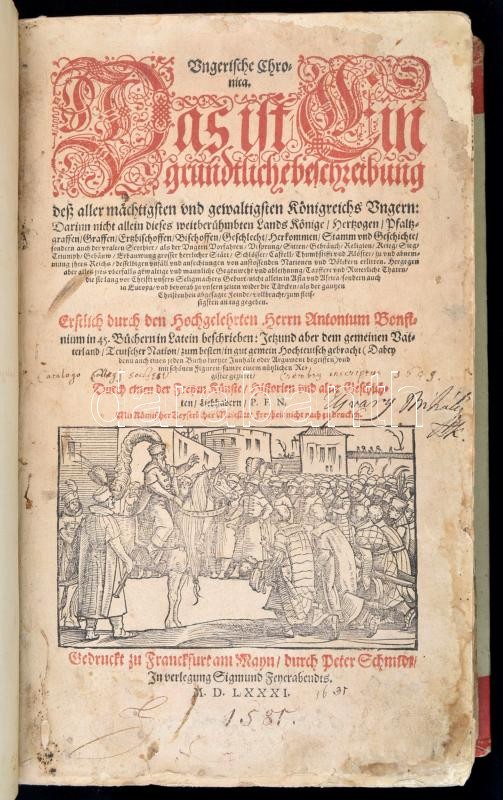 Vngerische Chro-
nica.
Das ist Ein
gründtliche beschreibung
deß aller mächtigsten vnd gewaltigsten Königreichs Vngern:
Darinn nicht allein dieses weitberühmbten Lands Könige / Hertzogen / Pfaltz-
graffen / Graffen / Ertzbischoffen / Bischoffen / Geschlecht / Herkommen / Stamm vnd Geschichte /
sondern auch der vralten Scythier / als der Vngern Vorfahren / Vrsprung / Sitten / Gebräuch / Religion / Krieg / Sieg /
Triumph / Gebäuw / Erbauwung grosser herrlicher Stätt / Schlösser / Castell / Thumbstifft vnd Klöster /
Reichs / desselbigen anfäll vnd anfechtungen von anstossenden Nationen vnd Völckern erlitten. Hergegen
aber alles
die sie lang vor Christi vnsers Seligmachers Geburt / nicht allein in Asia vnd Africa / sondern auch
in Europa / vnd bevorab zu vnsern zeiten wider die Türcken / als der gantzen
Christenheit abgesagte Feinde / vollbracht / zum fleis-
sigsten an tag gegeben.
Erstlich durch den Hochgelehrten Herrn Antonium Bonfi-
nium in 45. Büchern in Latein beschrieben: Jetzund aber dem gemeinen Vat-
terland / Teutscher Nation / zum besten / in gut gemein Hochteutsch gebracht / Dabey
denn auch eines jeden Buchs kurtzer Innhalt oder Argument begriffen / vnd
mit schönen Figuren / sampt einem nützlichen Re-
gister gezieret /
Durch einen der Freyen Künste / Historien vnd alter Geschich-
ten / Liebhabern / P. F. N.
Mit Römischer Keyserlicher Maiestat Freyheit nicht nach zudrucken.
Gedruckt zu Franckfurt am Mayn / durch Peter Schmidt /
In verlegung Sigmund Feyerabendts.
M. D. LXXXI.
1581.